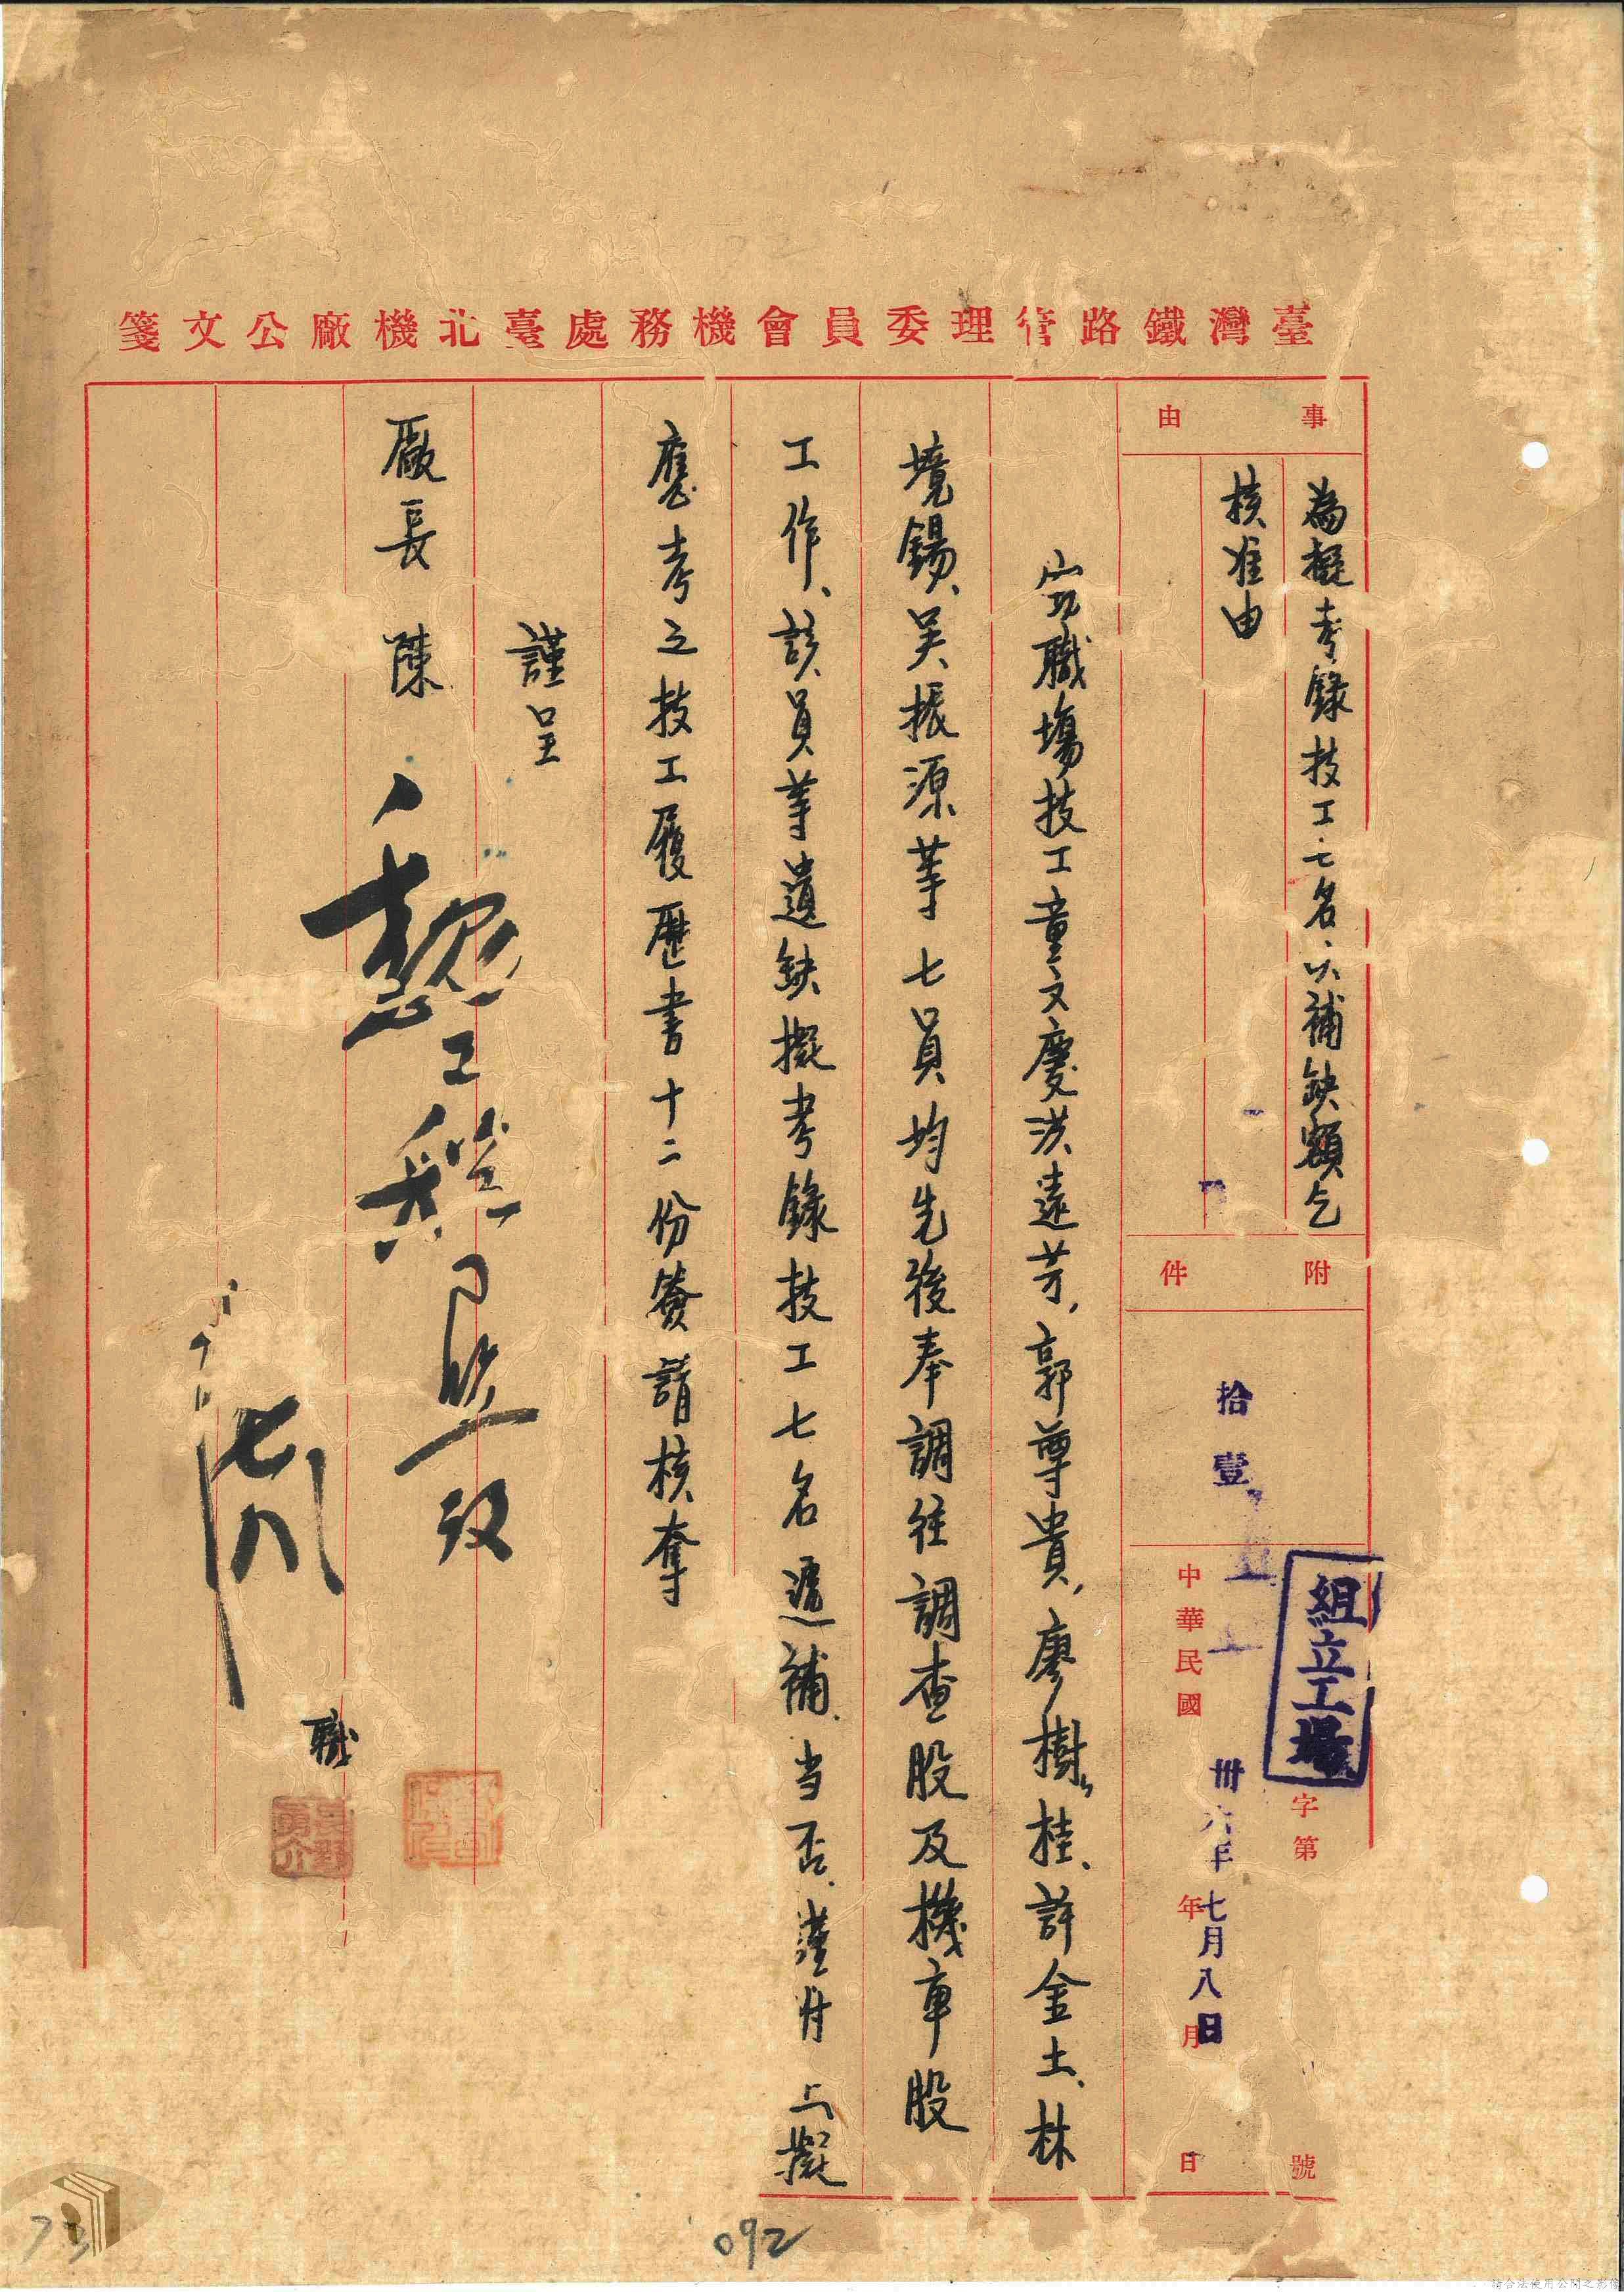 臺灣鐵路管理委員會機務處臺北機廠公文箋
事由
為擬考錄技工七名以補缺額乞
核准由
附件
拾壹
組立工場
字第 號
中華民國 年 月 日
卅六年七月八日
窃職場技工童文慶洪遠芳,郭尊貴,廖樹桂、許金土、林
境錫、吴振源等七員均先後奉調往調查股及機車股
工作、該員等遺缺擬考錄技工七名遞補、当否、謹付上擬
應考之技工履歷書十二份簽請核奪
謹呈
廠長 陳
職
092
73
請合法使用公開之影像